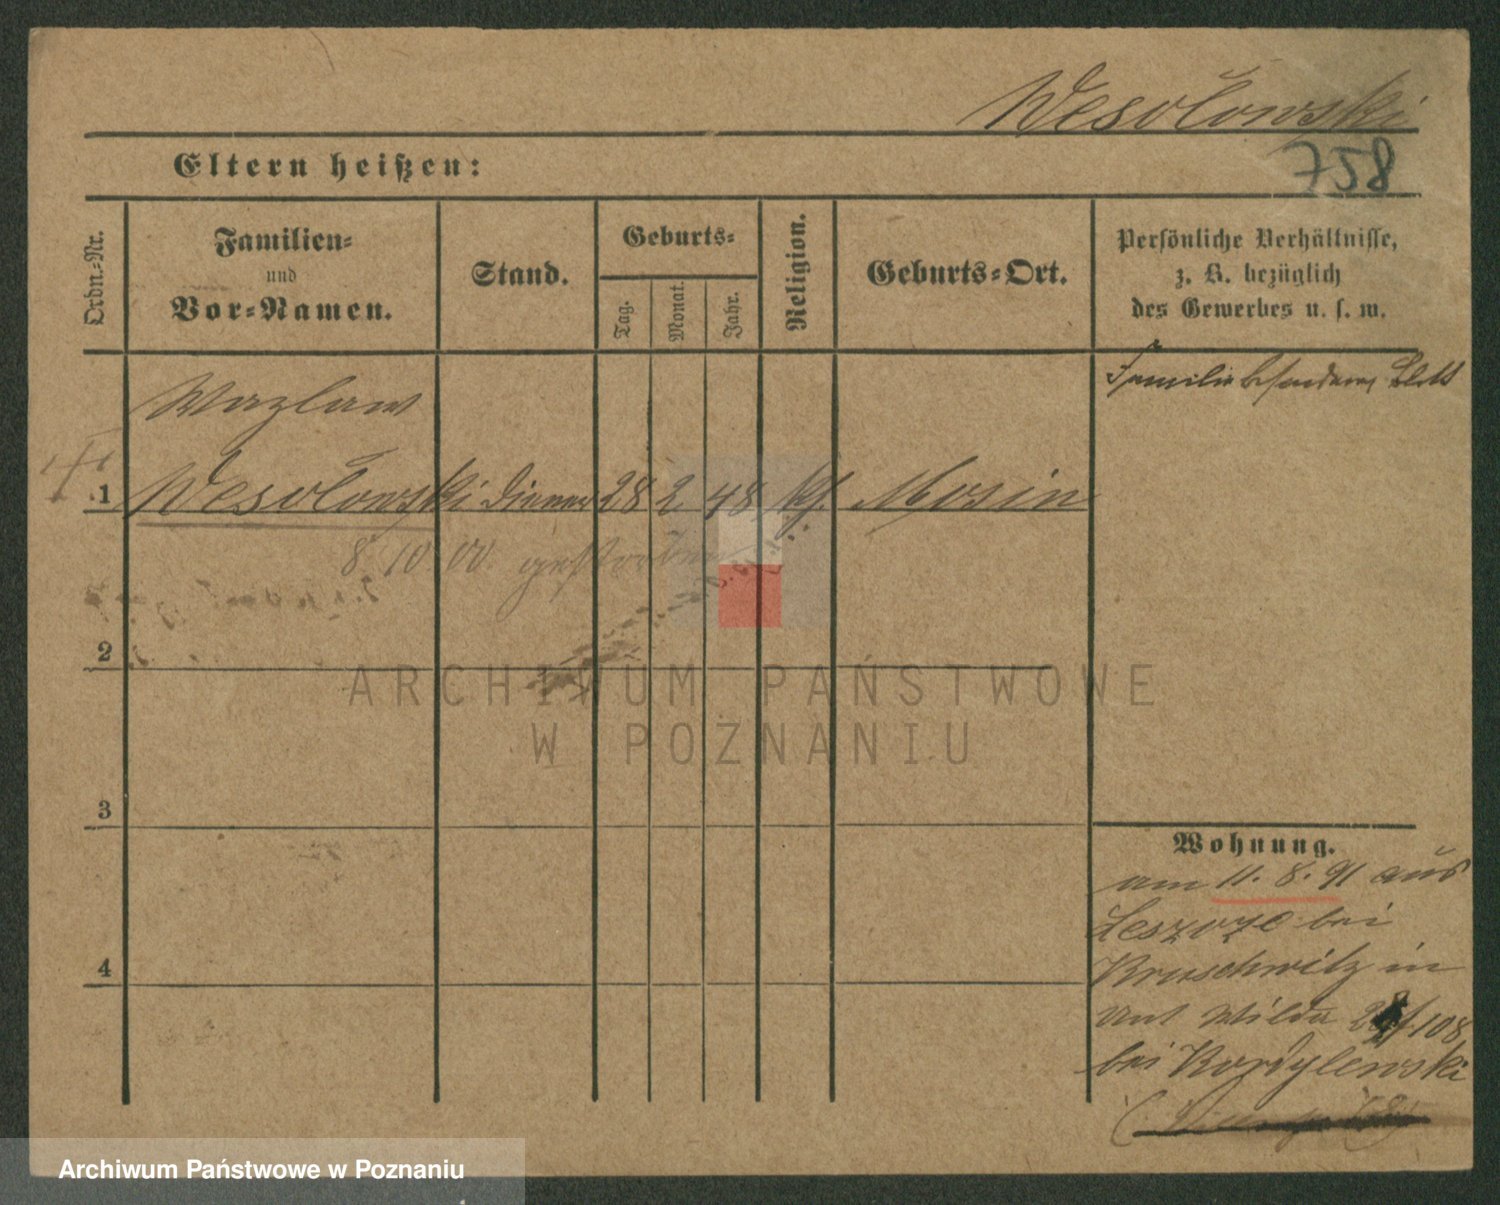 Wesołowski
758
Eltern heißen:
Ordn.-Nr.
Familien-
und
Vor-Namen.
Stand.
Geburts-
Tag.
Monat.
Jahr.
Religion.
Geburts-Ort.
Persönliche Verhältnisse,
z. B. bezüglich
des Gewerbes u. s. w.
Familie besonderes Blatt
Wazlaw
1 Wesołowski Diener 28 2 48 kf. Mosin
8 10 00 gestorben
2
ARCHIWUM PAŃSTWOWE
W POZNANIU
3
Wohnung.
am 11. 8. 91 aus
Leszcze bei
Kruschwitz in
4
Unt Wilda 108
bei Kordylewski
Archiwum Państwowe w Poznaniu